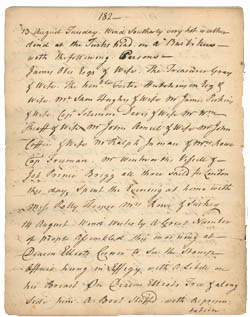 182—
13 August Tuesday. Wind Southerly very hot weather
dind at the Turks head, on a Barbikue—
with the following Persons—
James Otis Esqr & Wife. The Treasurer Gray
& Wife. The Honble Foster Hutchinson Esq &
Wife. Mr Sam Hughes & Wife Mr James Perkins
& Wife Capt Solomon Davis & Wife Mr Wm
& Wife Mr John Amiel & Wife Mr John
Coffin & Wife Mr Ralph Inman & Mrs Rowe
Cap
Job Prince Brigg all those Saild for London
this day, Spent the Evening at home with
Miss Patty Mrs Rowe & Sukey
14 August. Wind Westerly a Great Number
of people Assembled this morning at
Deacon Elliots Corner to See the Stamp
Officer hung in Effigy, with a Libell on
his Breast. On Deacon Elliots Tree & along
Side him A Boot Stuffed with represen
tation